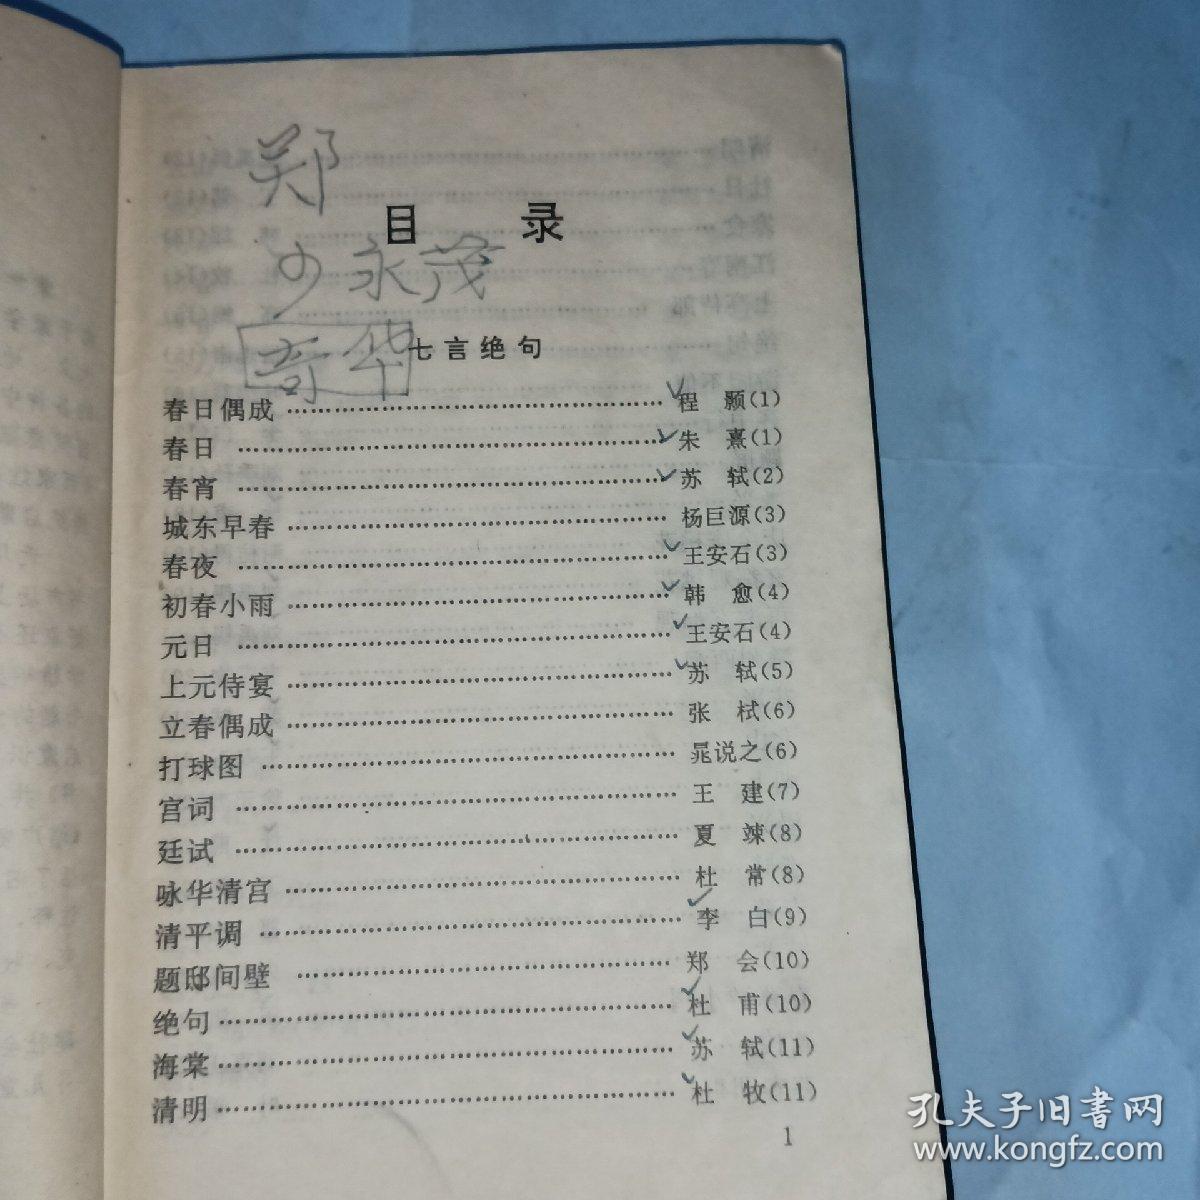 郑
目 录
少永茂
奇华
七言绝句
春日偶成……………………………………程 颢(1)
春日……………………………………朱 熹(1)
春宵……………………………………苏 轼(2)
城东早春……………………………………杨巨源(3)
春夜……………………………………王安石(3)
初春小雨……………………………………韩 愈(4)
元日……………………………………王安石(4)
上元侍宴……………………………………苏 轼(5)
立春偶成……………………………………张 栻(6)
打球图……………………………………晁说之(6)
宫词……………………………………王 建(7)
廷试……………………………………夏 竦(8)
咏华清宫……………………………………杜 常(8)
清平调……………………………………李 白(9)
题邸间壁……………………………………郑 会(10)
绝句……………………………………杜 甫(10)
海棠……………………………………苏 轼(11)
清明……………………………………杜 牧(11)
1
孔夫子旧书网
www.kongfz.com